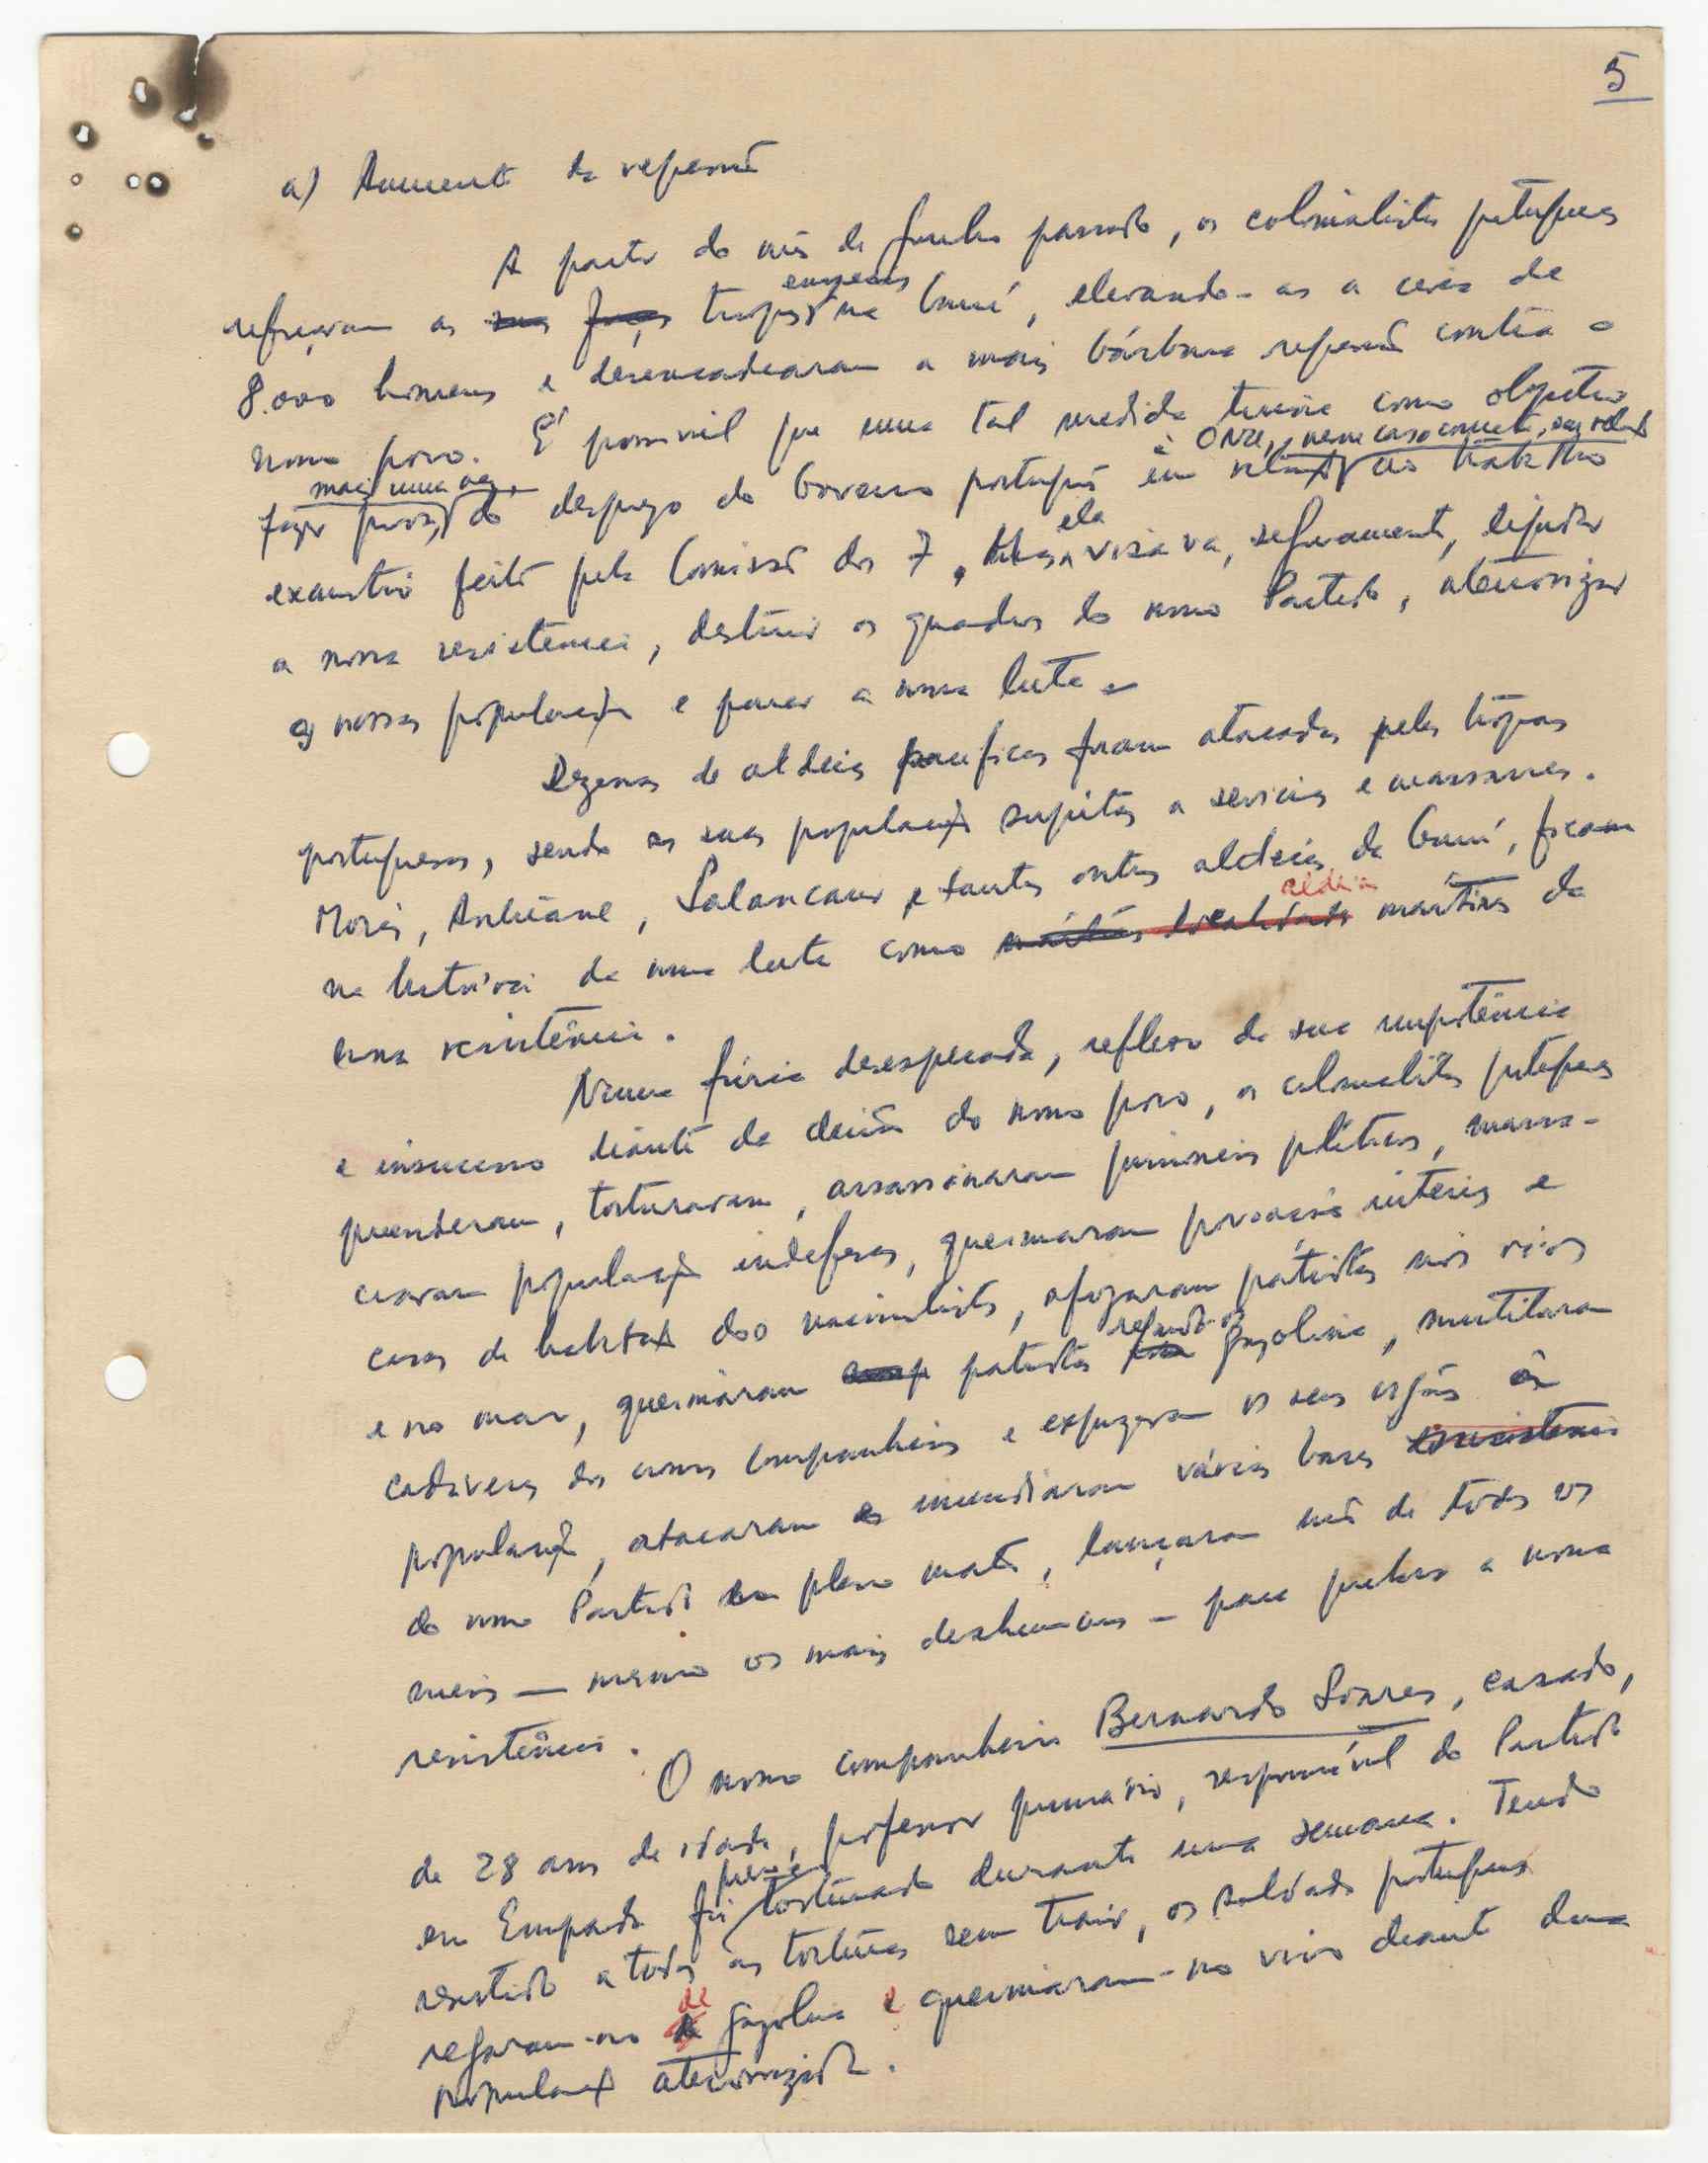 5
a) Aumento da repressão
A partir do mês de Junho passado, os colonialistas portugueses
reforçaram as suas forças tropas europeias na Guiné, elevando-as a cerca de
8.000 homens e desencadearam a mais bárbara repressão contra o
nosso povo. É possível que uma tal medida tivesse como objectivo
fazer prova, mais uma vez, do desprezo do Governo português em relação à ONU, e, nesse caso concreto, em relação ao trabalho
exaustivo feito pela Comissão dos 7, Mas ela visava, seguramente, liquidar
a nossa resistência, destruir os quadros do nosso Partido, aterrorizar
as nossas populações e parar a nossa luta.
Dezenas de aldeias pacíficas foram atacadas pelas tropas
portuguesas, sendo as suas populações sujeitas a sevícias e massacres.
Morés, Ambiane, Salancaur e tantas outras aldeias da Guiné, ficam
na história da nossa luta como mártires localidades aldeias mártires da
nossa resistência.
Numa fúria desesperada, reflexo da sua impotência
e insucesso diante da decisão do nosso povo, os colonialistas portugueses
prenderam, torturaram, assassinaram prisioneiros políticos, massa-
craram populações indefesas, queimaram povoações inteiras e
casas de habitação dos nacionalistas, afogaram patriotas nos rios
e no mar, queimaram patriotas regando-os gazolina, mutilaram
cadáveres dos nossos companheiros e expuzeram os seus orgãos às
populações, atacaram e incendiaram várias bases da resistência
do nosso Partido em pleno mato, lançaram mão de todos os
meios — mesmo os mais deshumanos — para quebrar a nossa
resistência.
O nosso companheiro Bernardo Soares, casado,
de 28 anos de idade, professor primário, responsável do Partido
em Empada foi preso e torturado durante uma semana. Tendo
resistido a todas as torturas sem trair, os soldados portugueses
regaram-no de gazolina e queimaram-no vivo diante duma
população aterrorizada.